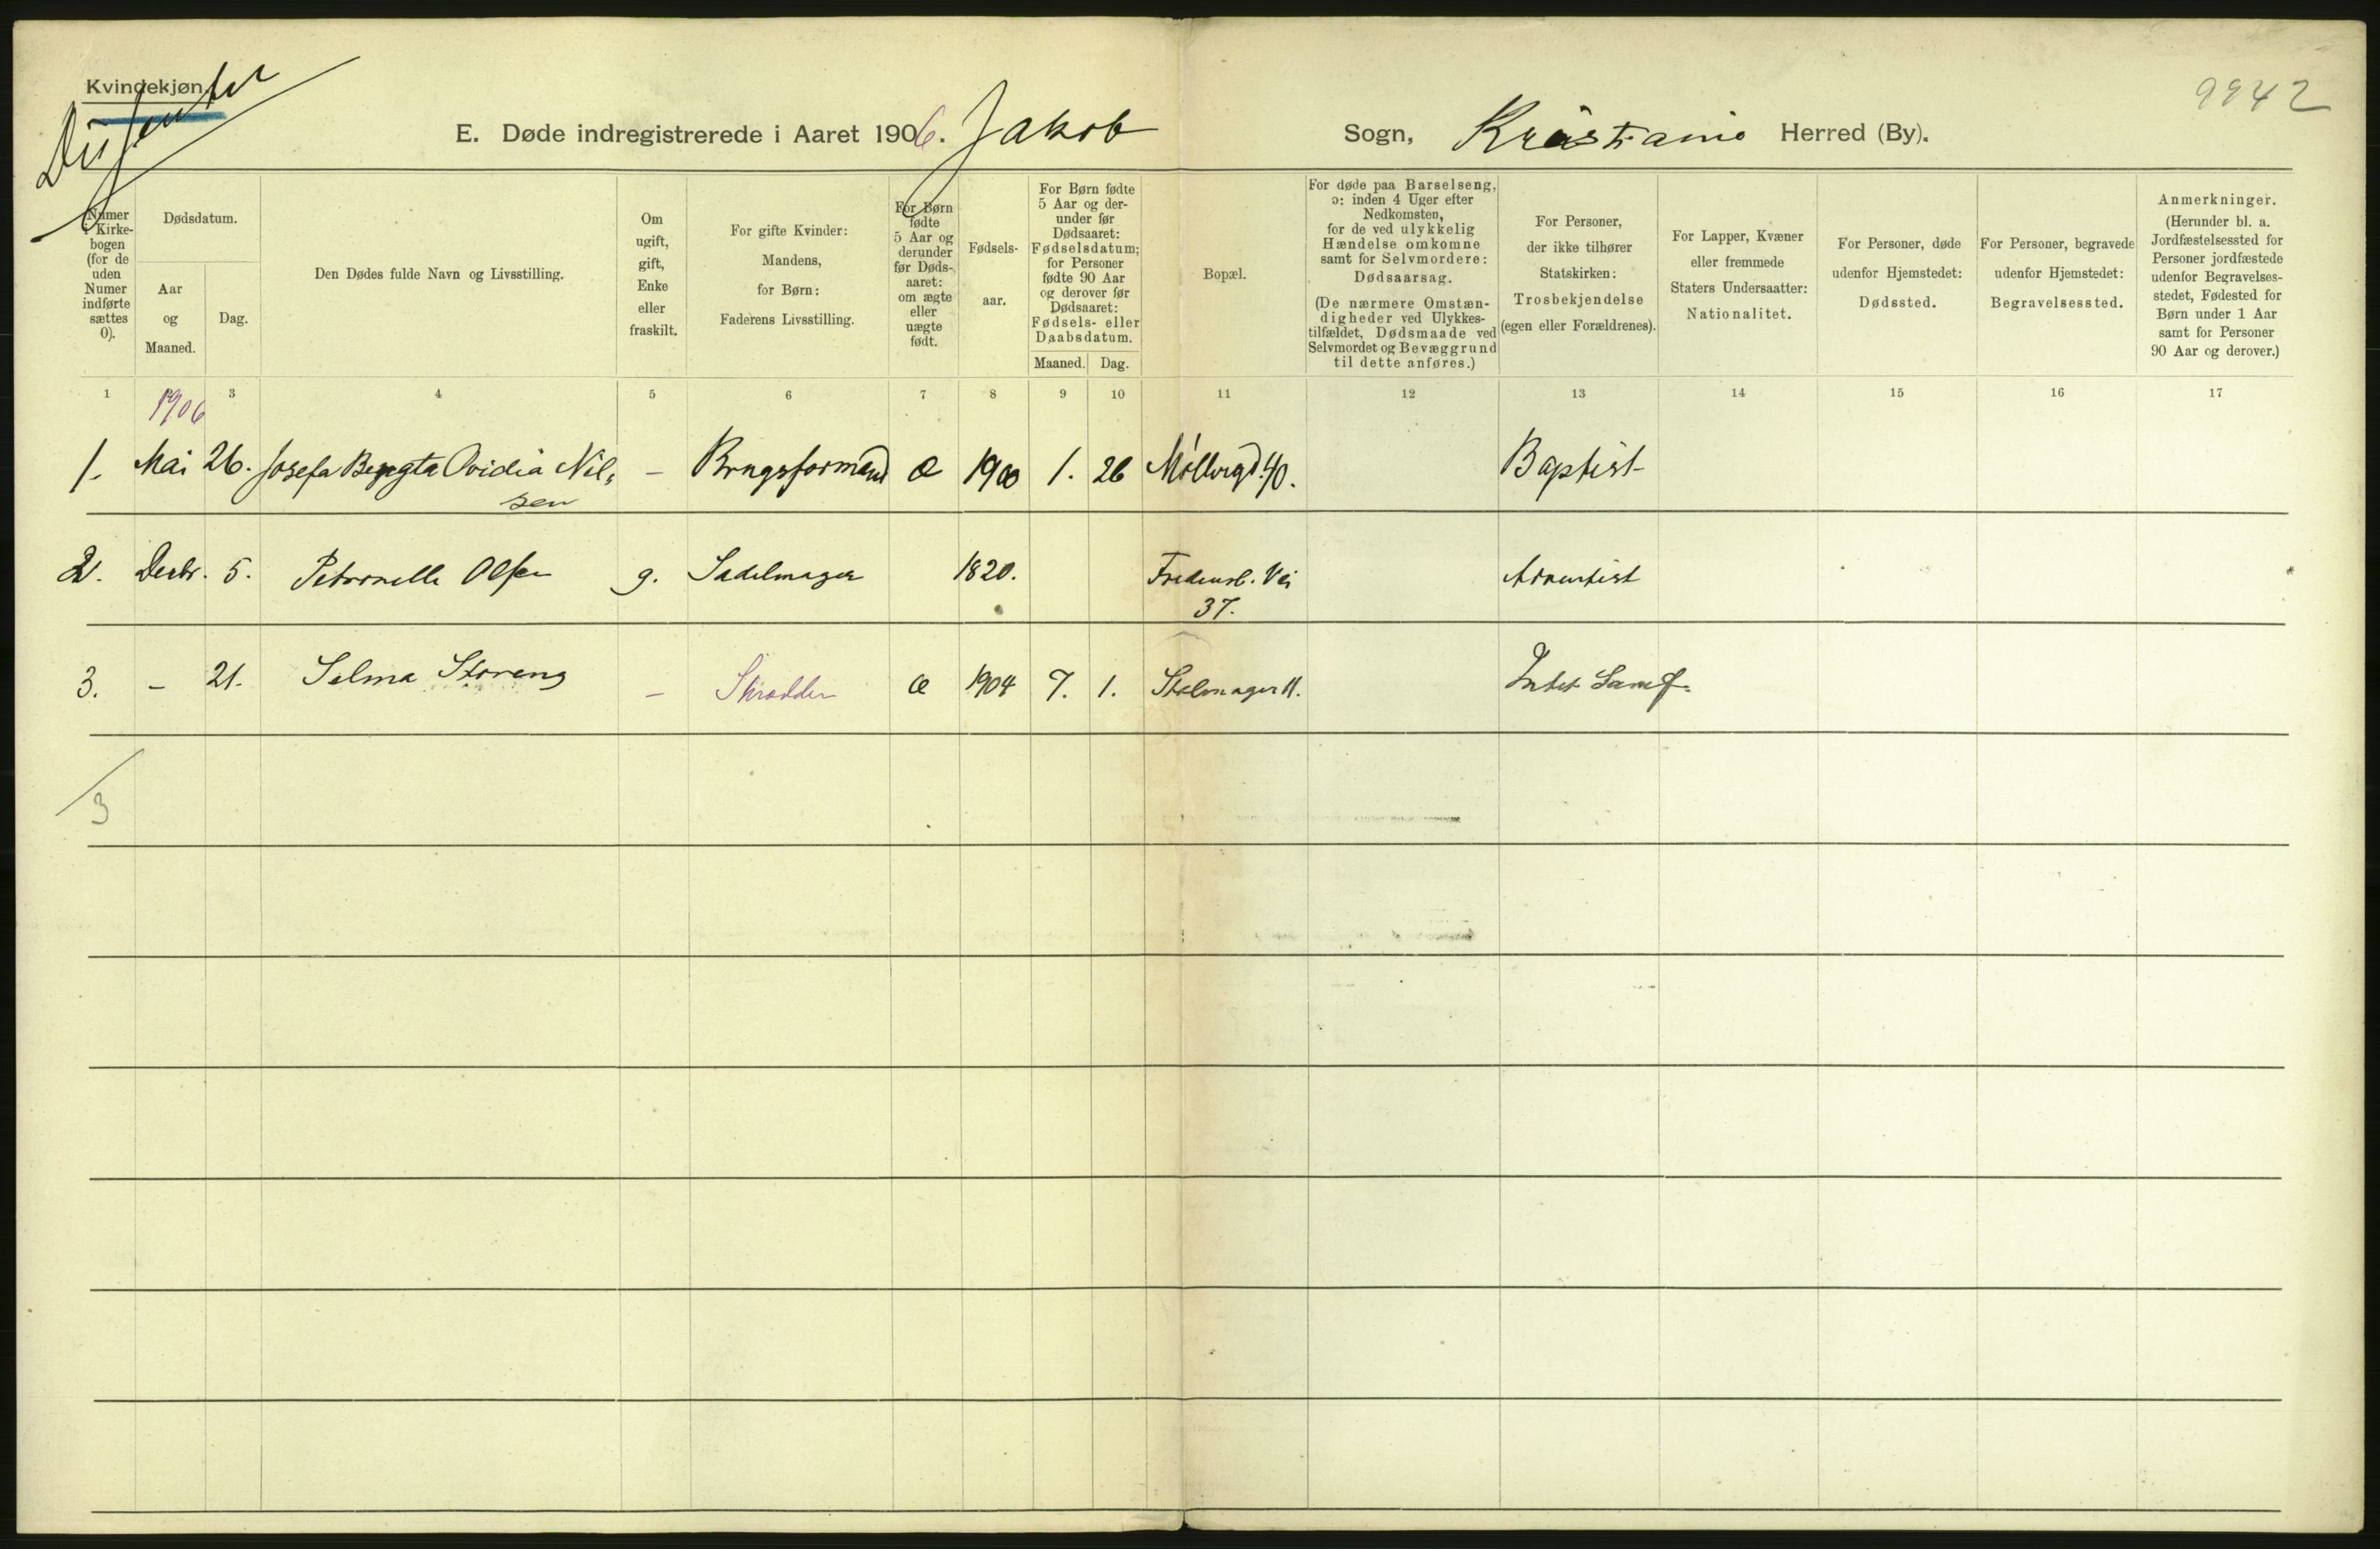 Kvindekjøn.
Dissenter
9942
E. Døde indregistrerede i Aaret 1906. Jakob Sogn, Kristiania Herred (By).
Numer i Kirke-bogen (for de uden Numer indførte sættes 0).
Dødsdatum.
Aar og Maaned.
Dag.
Den Dødes fulde Navn og Livsstilling.
Om ugift, gift, Enke eller fraskilt.
For gifte Kvinder: Mandens, for Børn: Faderens Livsstilling.
For Børn fødte 5 Aar og derunder før Døds-aaret: om ægte eller uægte født.
Fødsels-aar.
For Børn fødte 5 Aar og der-under før Dødsaaret: Fødselsdatum; for Personer fødte 90 Aar og derover før Dødsaaret: Fødsels- eller Daabsdatum.
Maaned.
Dag.
Bopæl.
For døde paa Barselseng, ɔ: inden 4 Uger efter Nedkomsten, for de ved ulykkelig Hændelse omkomne samt for Selvmordere: Dødsaarsag.
(De nærmere Omstæn-digheder ved Ulykkes-tilfældet, Dødsmaade ved Selvmordet og Bevæggrund til dette anføres.)
For Personer, der ikke tilhører Statskirken: Trosbekjendelse (egen eller Forældrenes).
For Lapper, Kvæner eller fremmede Staters Undersaatter: Nationalitet.
For Personer, døde udenfor Hjemstedet: Dødssted.
For Personer, begravede udenfor Hjemstedet: Begravelsessted.
Anmerkninger.
(Herunder bl. a. Jordfæstelsessted for Personer jordfæstede udenfor Begravelses-stedet, Fødested for Børn under 1 Aar samt for Personer 90 Aar og derover.)
1 3 4 5 6 7 8 9 10 11 12 13 14 15 16 17
1906
1. Mai 26. Josefa Ovidia Nil- – Brugsformand æ 1900 1. 26 Møllergd. 40. Baptist
sen
2. Decbr. 5. Petronelle Olsen g. Sadelmager 1820. Fredensb. Vei Adventist
37.
3. – 21. Selma Storeng – Skrædder æ 1904 7. 1. 11. Intet Samf.
3